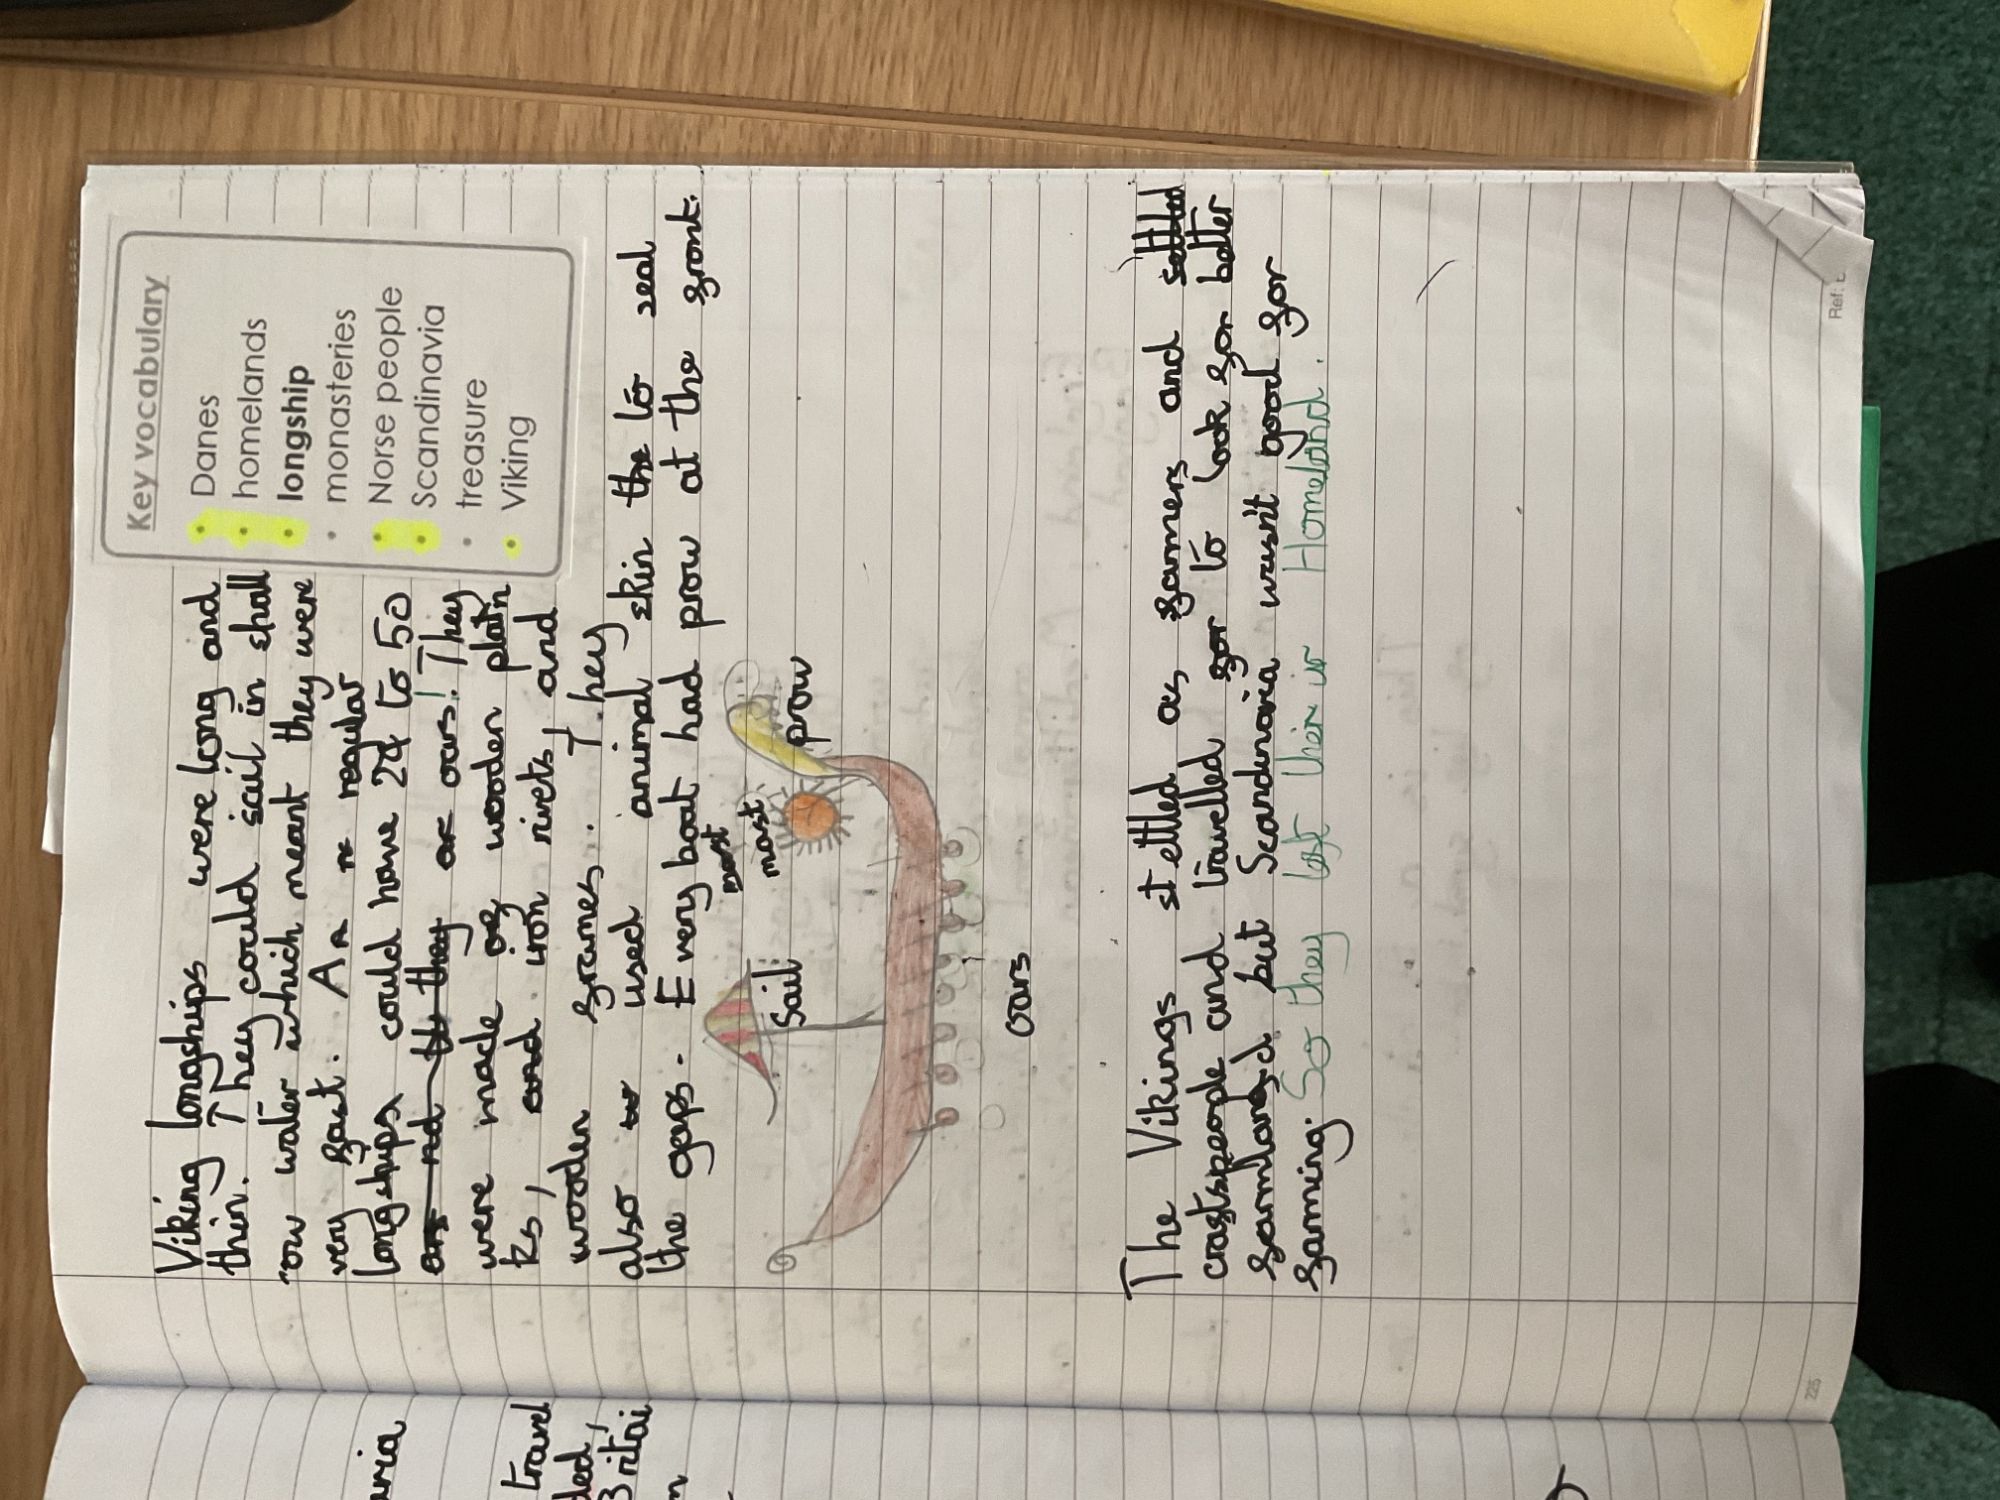 Key vocabulary
• Danes
• homelands
• longship
• monasteries
• Norse people
• Scandinavia
• treasure
• Viking
Viking longships were long and
thin. They could sail in shall
ow water which meant they were
very fast. A regular
longships could have 24 to 50
oars! They
were made of wooden plan
ks, iron rivets, and
wooden frames. They
also used animal skin to seal
the gaps. Every boat had prow at the front.
mast
prow
mast
Sail
oars
The Vikings settled as farmers and settled
craftspeople and travelled for to look for better
farmland but Scandinavia wasn't good for
farming. So they left their Homeland.
225
Ref:
aria
travel
ded,
Britai